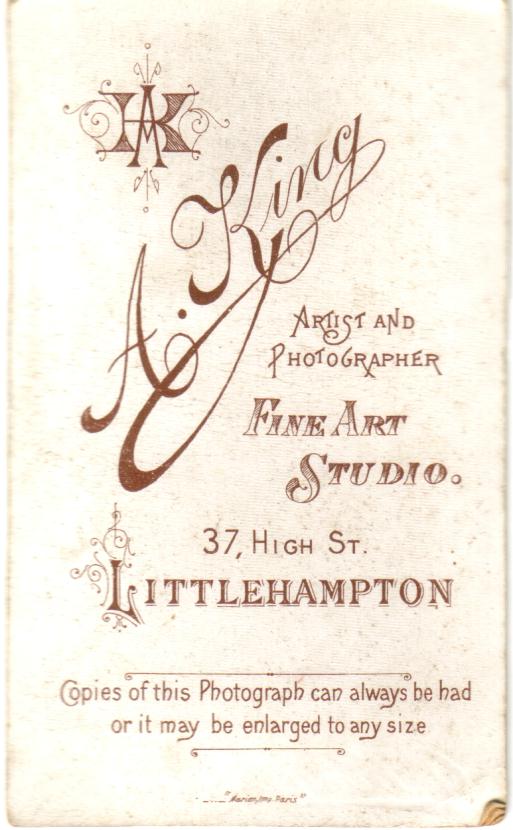 AK
A. King
ARTIST AND
PHOTOGRAPHER
FINE ART
STUDIO.
37, HIGH ST.
LITTLEHAMPTON
Copies of this Photograph can always be had
or it may be enlarged to any size
"Marion, Imp. Paris"